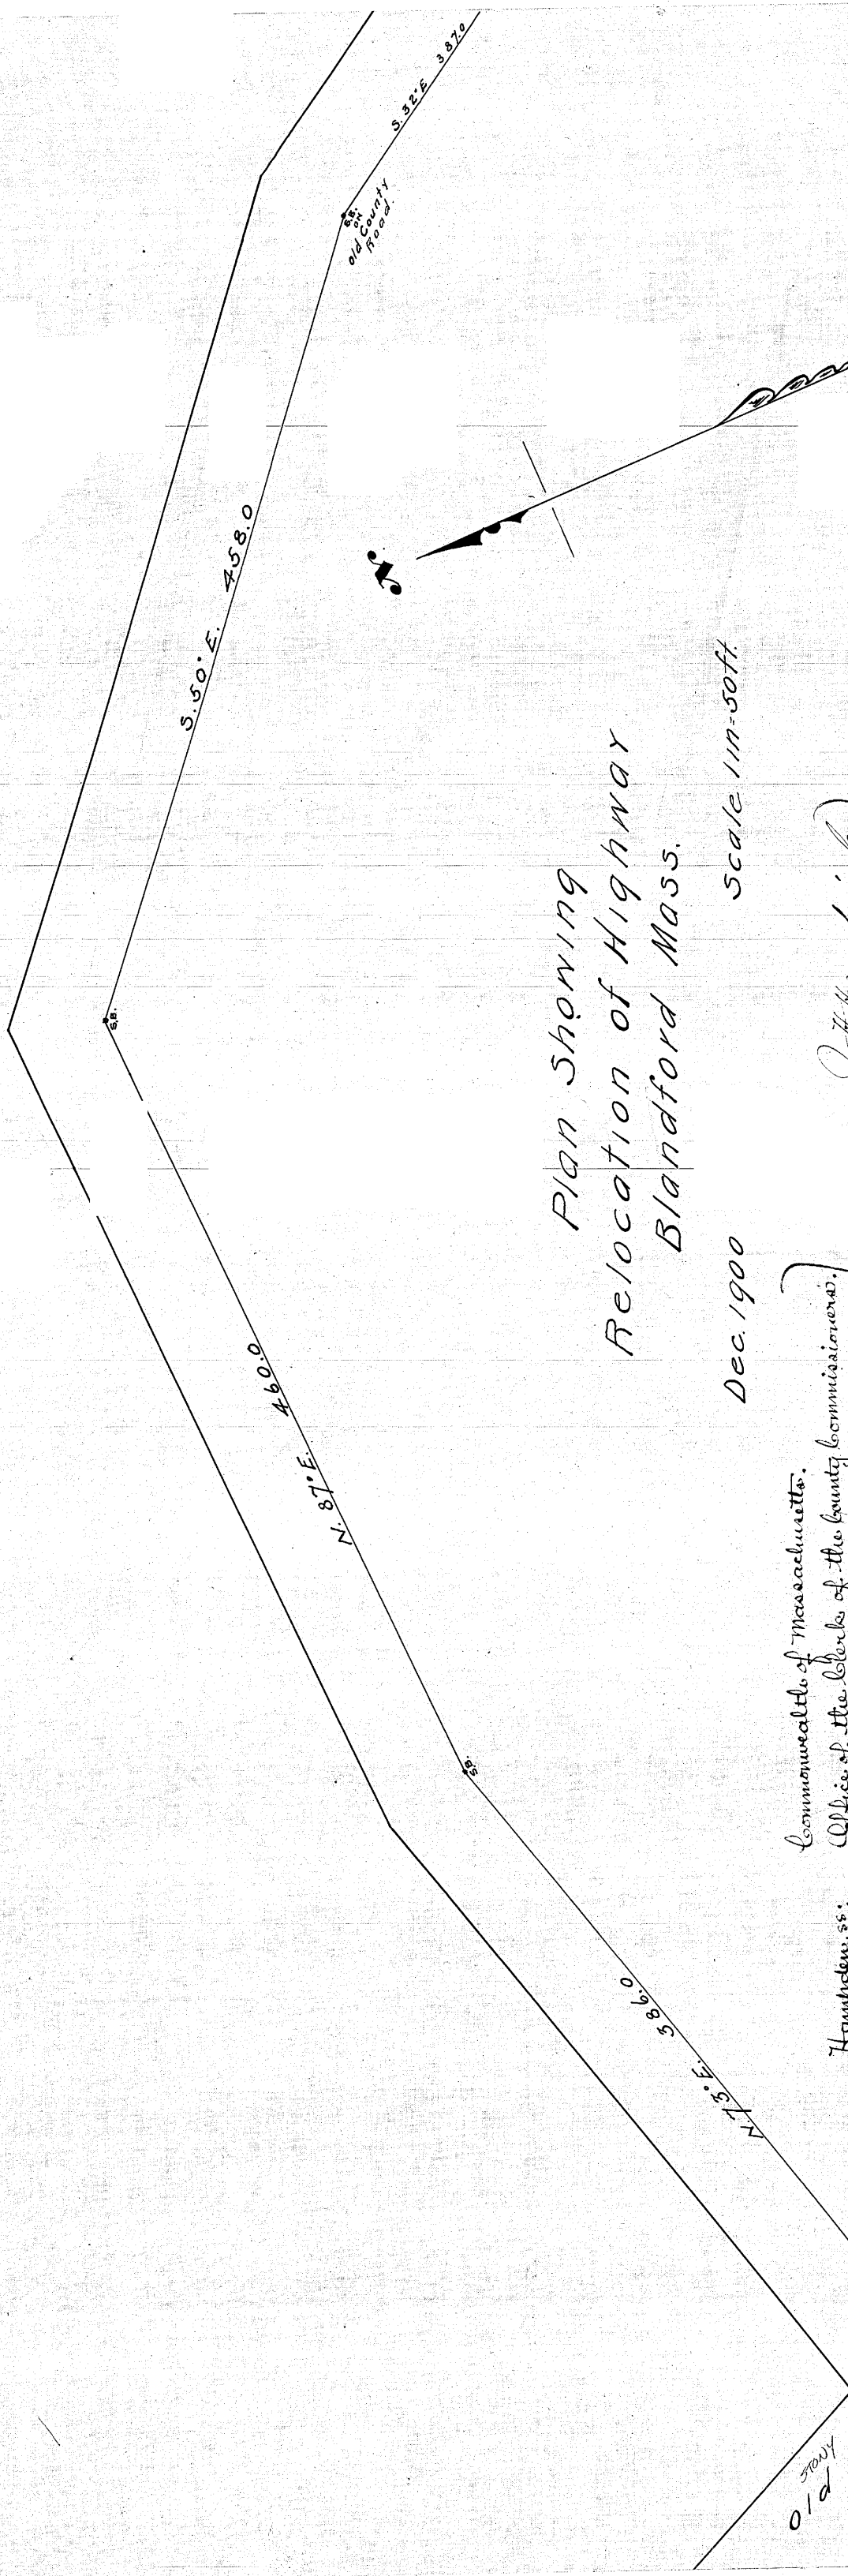 S. 32° E 387.0
S.B.
on
old County
Road.
S. 50° E. 458.0
S.B.
N
N. 87° E. 460.0
S.B.
N. 73° E. 386.0
STONY
Old
Plan Showing
Relocation of Highway
Blandford Mass.
Dec. 1900 Scale 1in=50ft.
Commonwealth of Massachusetts.
Hampden, ss. Office of the Clerk of the County Commissioners.